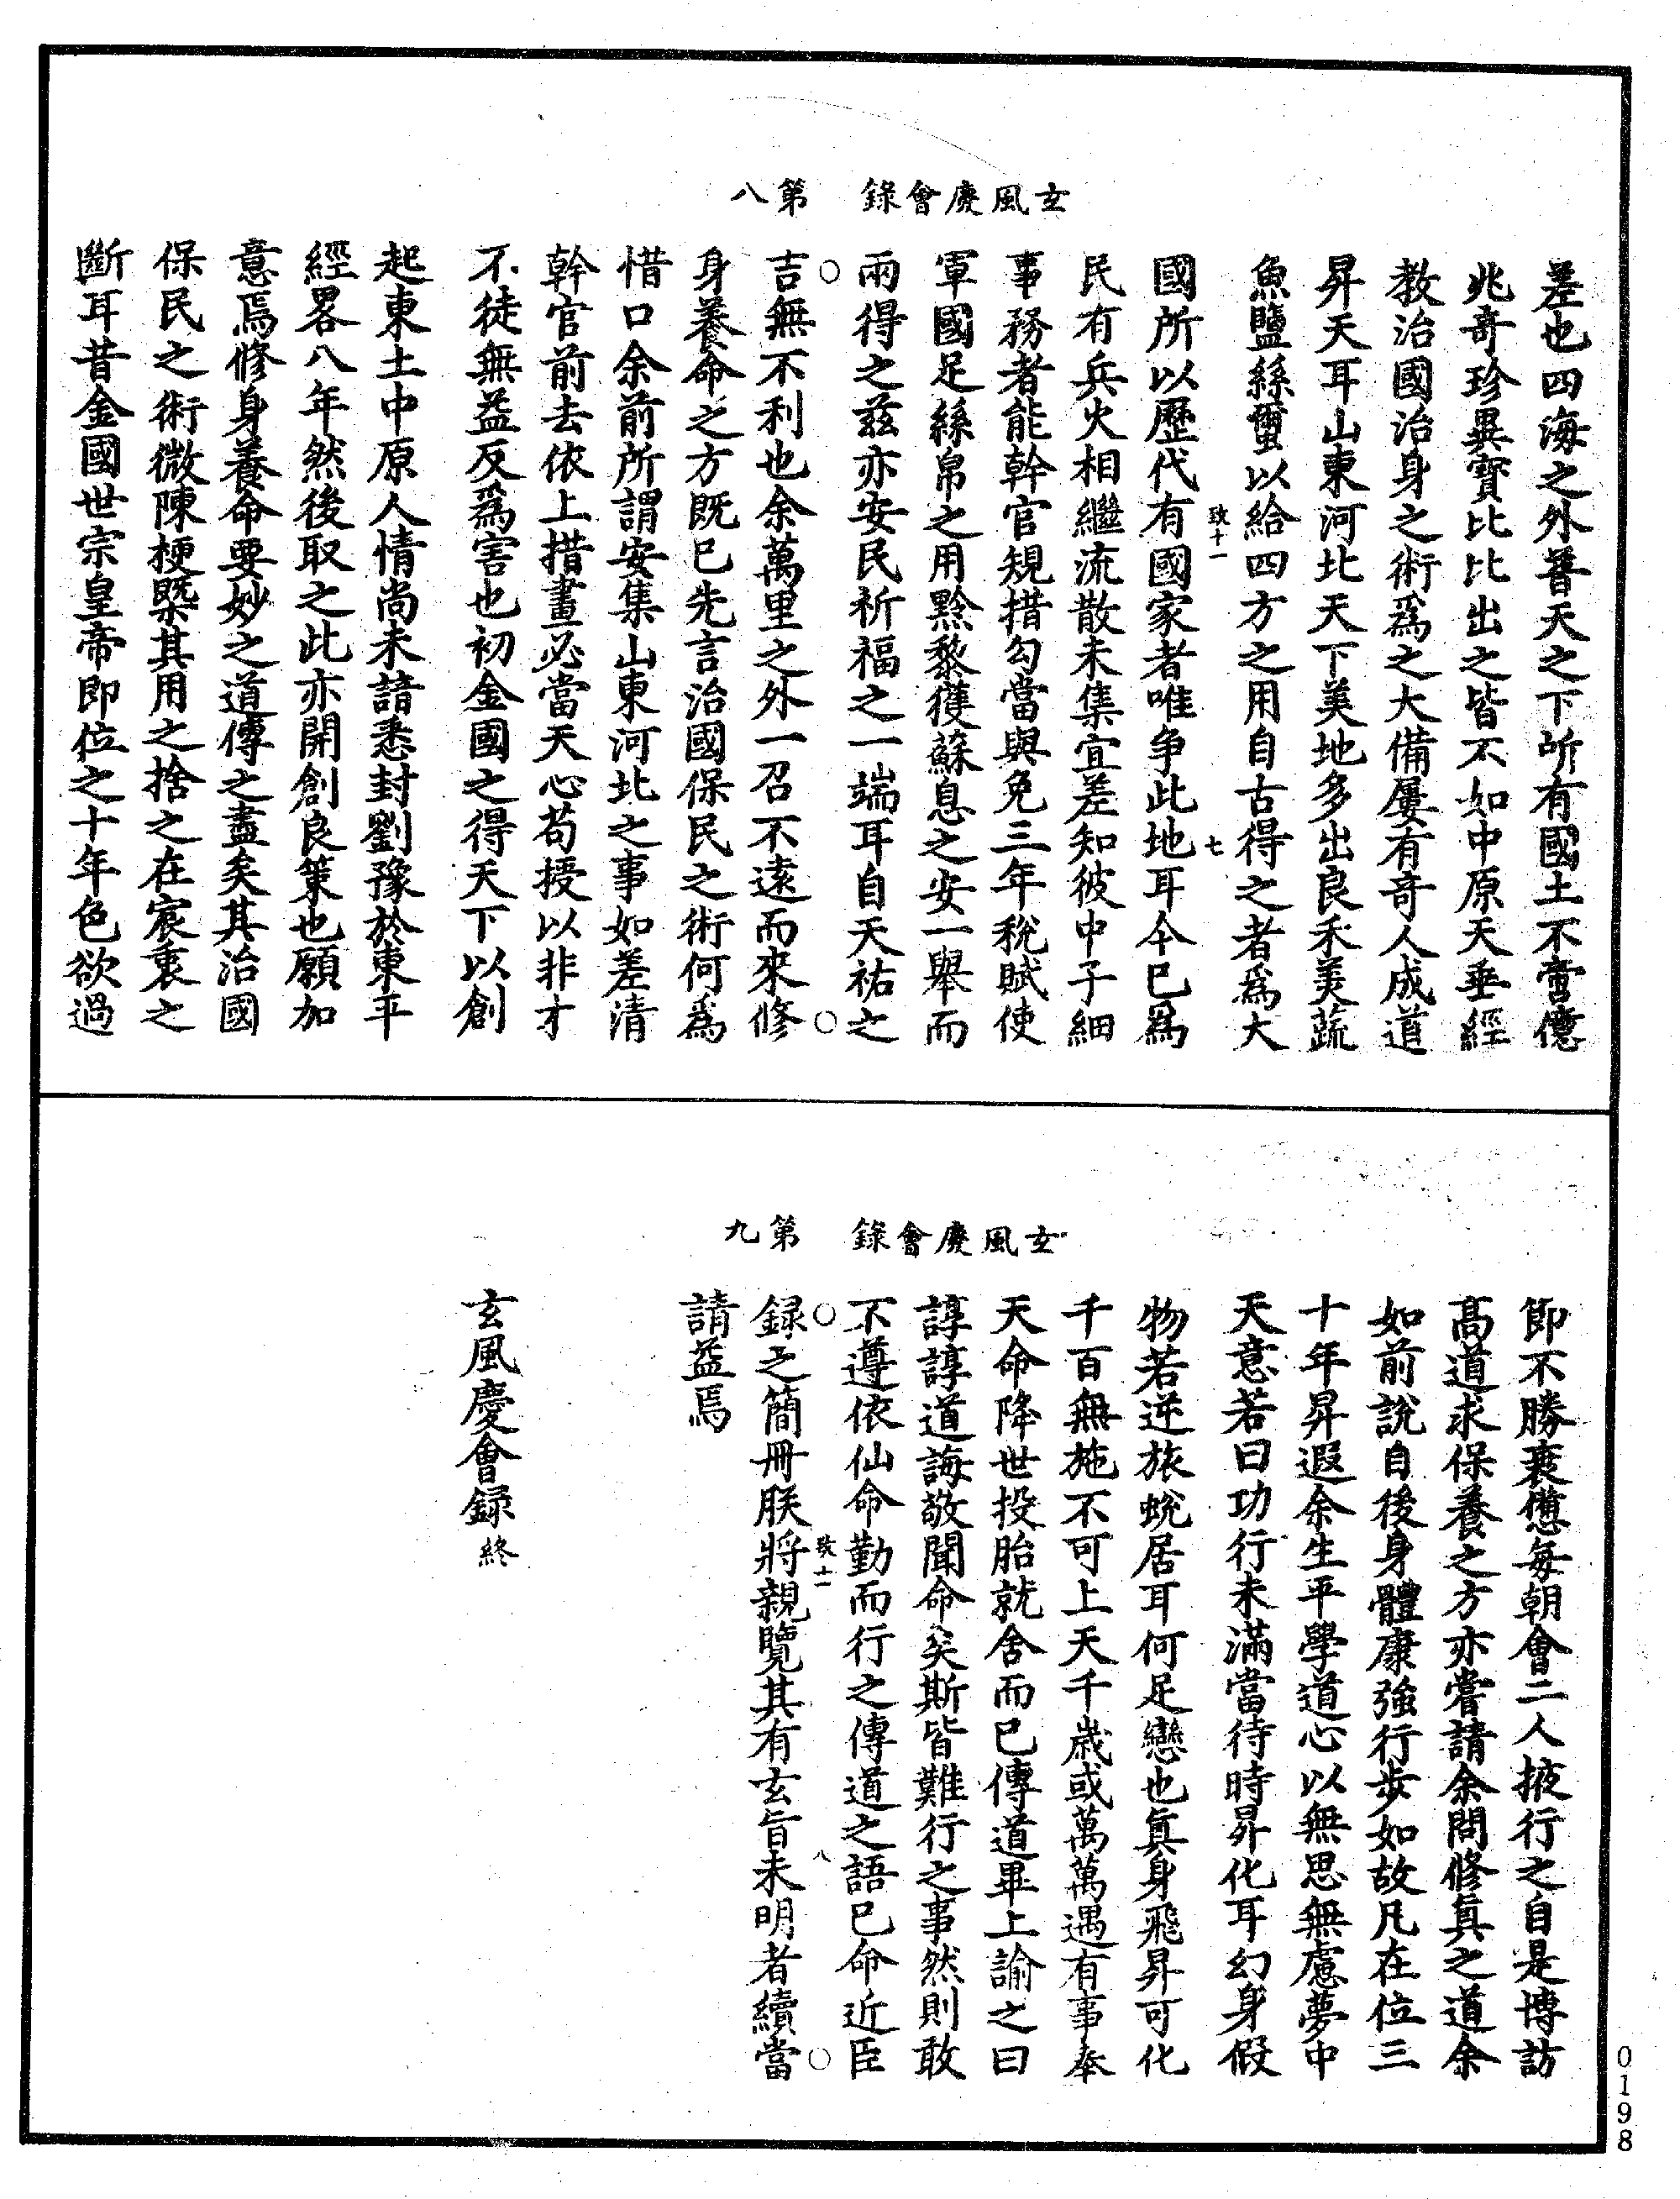 玄風慶會錄　第八
差也四海之外普天之下所有國土不啻億
兆奇珍異寶比比出之皆不如中原天垂經
教治國治身之術爲之大備屢有奇人成道
昇天耳山東河北天下美地多出良禾美蔬
魚鹽絲蠒以給四方之用自古得之者爲大
致十一　七
國所以歷代有國家者唯爭此地耳今已爲
民有兵火相繼流散未集宜差知彼中子細
事務者能幹官規措勾當與免三年稅賦使
軍國足絲帛之用黔黎獲蘇息之安一舉而
兩得之茲亦安民祈福之一端耳自天祐之
吉無不利也余萬里之外一召不遠而來修
身養命之方既已先言治國保民之術何爲
惜口余前所謂安集山東河北之事如差清
幹官前去依上措畫必當天心苟授以非才
不徒無益反爲害也初金國之得天下以創
起東土中原人情尚未諳悉封劉豫於東平
經畧八年然後取之此亦開創良策也願加
意焉修身養命要妙之道傳之盡矣其治國
保民之術微陳梗槩其用之捨之在宸衷之
斷耳昔金國世宗皇帝即位之十年色欲過
玄風慶會錄　第九
節不勝衰憊每朝會二人掖行之自是博訪
高道求保養之方亦嘗請余問修眞之道余
如前說自後身體康強行步如故凡在位三
十年昇遐余生平學道心以無思無慮夢中
天意若曰功行未滿當待時昇化耳幻身假
物若逆旅蛻居耳何足戀也眞身飛昇可化
千百無施不可上天千歲或萬萬遇有事奉
天命降世投胎就舍而已傳道畢上諭之曰
諄諄道誨敬聞命矣斯皆難行之事然則敢
不遵依仙命勤而行之傳道之語已命近臣
致十一　八
録之簡冊朕將親覽其有玄旨未明者續當
請益焉
玄風慶會録終
0198